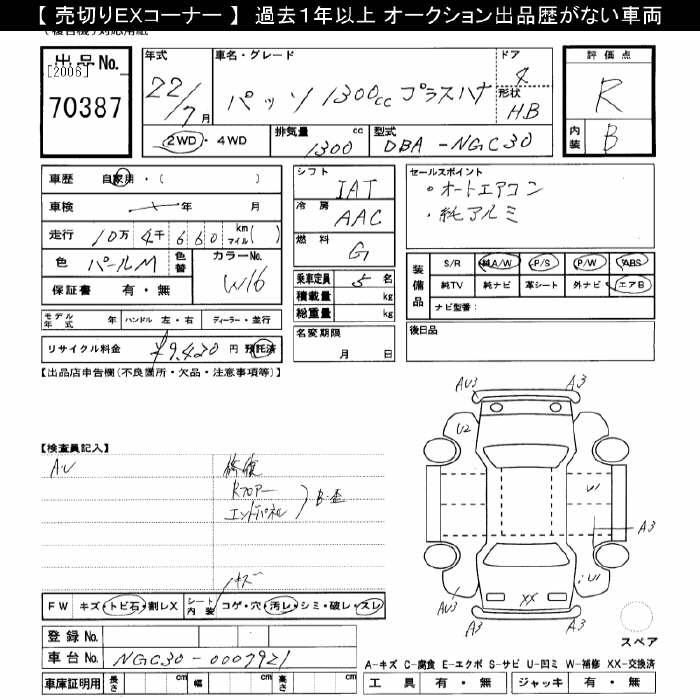 【 売切りEXコーナー 】 過去１年以上 オークション出品歴がない車両
出品No.
[2006]
70387
年式
22/7月
車名・グレード
パッソ 1300cc プラスハナ
ドア
4
形状
HB
2WD・4WD
排気量 cc
1300
型式
DBA-NGC30
評価点
R
内装
B
車歴 自家用・( )
車検 年 月
走行 10万 4千 660 km マイル( )
色 パールM 色替 カラーNo. W16
保証書 有・無
シフト IAT
冷房 AAC
燃料 G
乗車定員 5名
積載量 kg
総重量 kg
セールスポイント
・オートエアコン
・純アルミ
装備品
S/R 純A/W P/S P/W ABS
純TV 純ナビ 革シート 外ナビ エアB
ナビ型番:
モデル年式 年 ハンドル 左・右 ディーラー・並行
名変期限
月 日
後日品
リサイクル料金 ¥9,420 円 預託済
【出品店申告欄(不良箇所・欠品・注意事項等)】
AU3 A3
U2
【検査員記入】
AU 修復
Rフロアー
エンドパネル
B・歪
U1
A3
キズ
U1
AU3
XX
A3
FW キズ・トビ石・割レX シート内装 コゲ・穴・汚レ・シミ・破レ・スレ
スペア
登録No.
車台No. NGC30-0007921
車庫証明用 長さ cm 幅 cm 高さ cm
A-キズ C-腐食 E-エクボ S-サビ U-凹ミ W-補修 XX-交換済
工具 有・無 ジャッキ 有・無